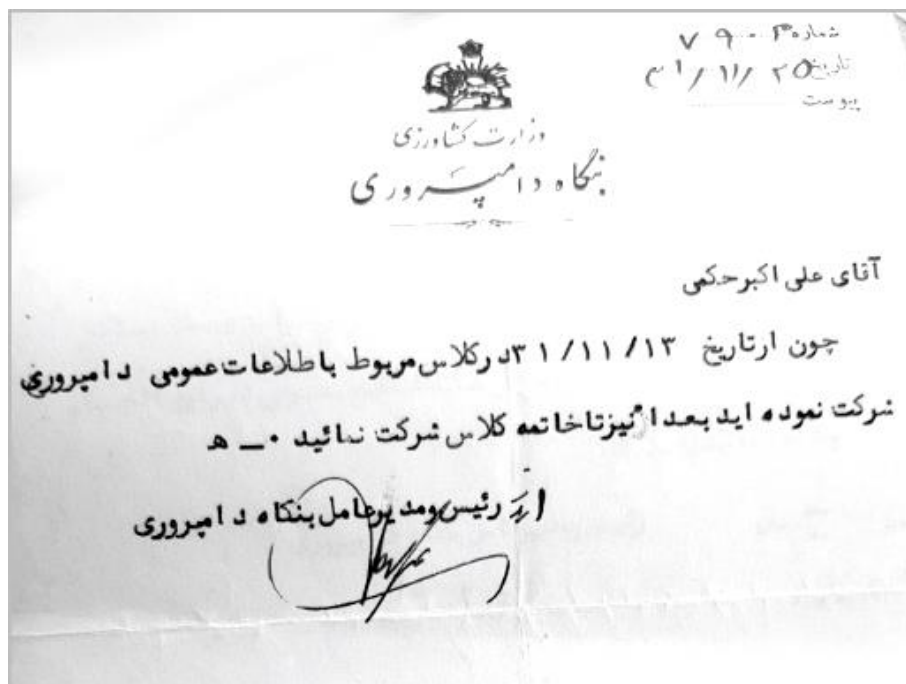 شماره ۷۹۰۰۴
تاریخ ۳۱/۱۱/۲۵
پیوست
وزارت کشاورزی
بنگاه دامپروری
آقای علی اکبر حکمی
چون ارتاریخ ۳۱/۱۱/۱۳ درکلاس مربوط باطلاعات عمومی دامپروری
شرکت نموده اید بعد از نیز تا خاتمه کلاس شرکت نمائید ۰ــ ه
رئیس ومدیرعامل بنگاه دامپروری